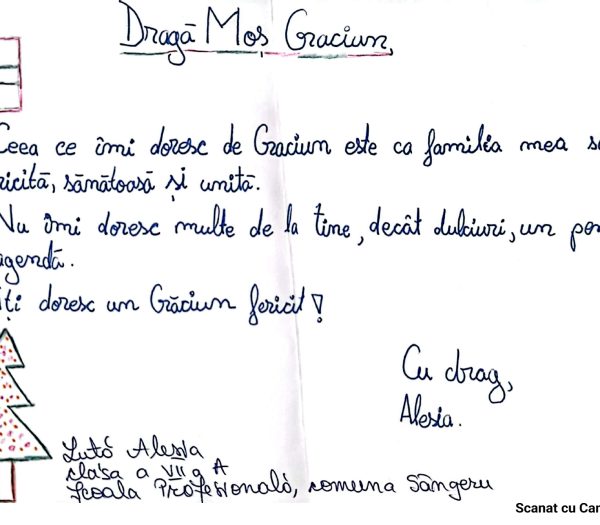 Dragă Moș Craciun,
Ceea ce îmi doresc de Craciun este ca familia mea
ricită, sănătoasă și unită.
Nu îmi doresc multe de la tine, decât dulciuri, un
agendă.
Îți doresc un Crăciun fericit!
Cu drag,
Alesia.
Alesia
clasa a VII a A
Școala Profesională, comuna Sângeru
Scanat cu Car